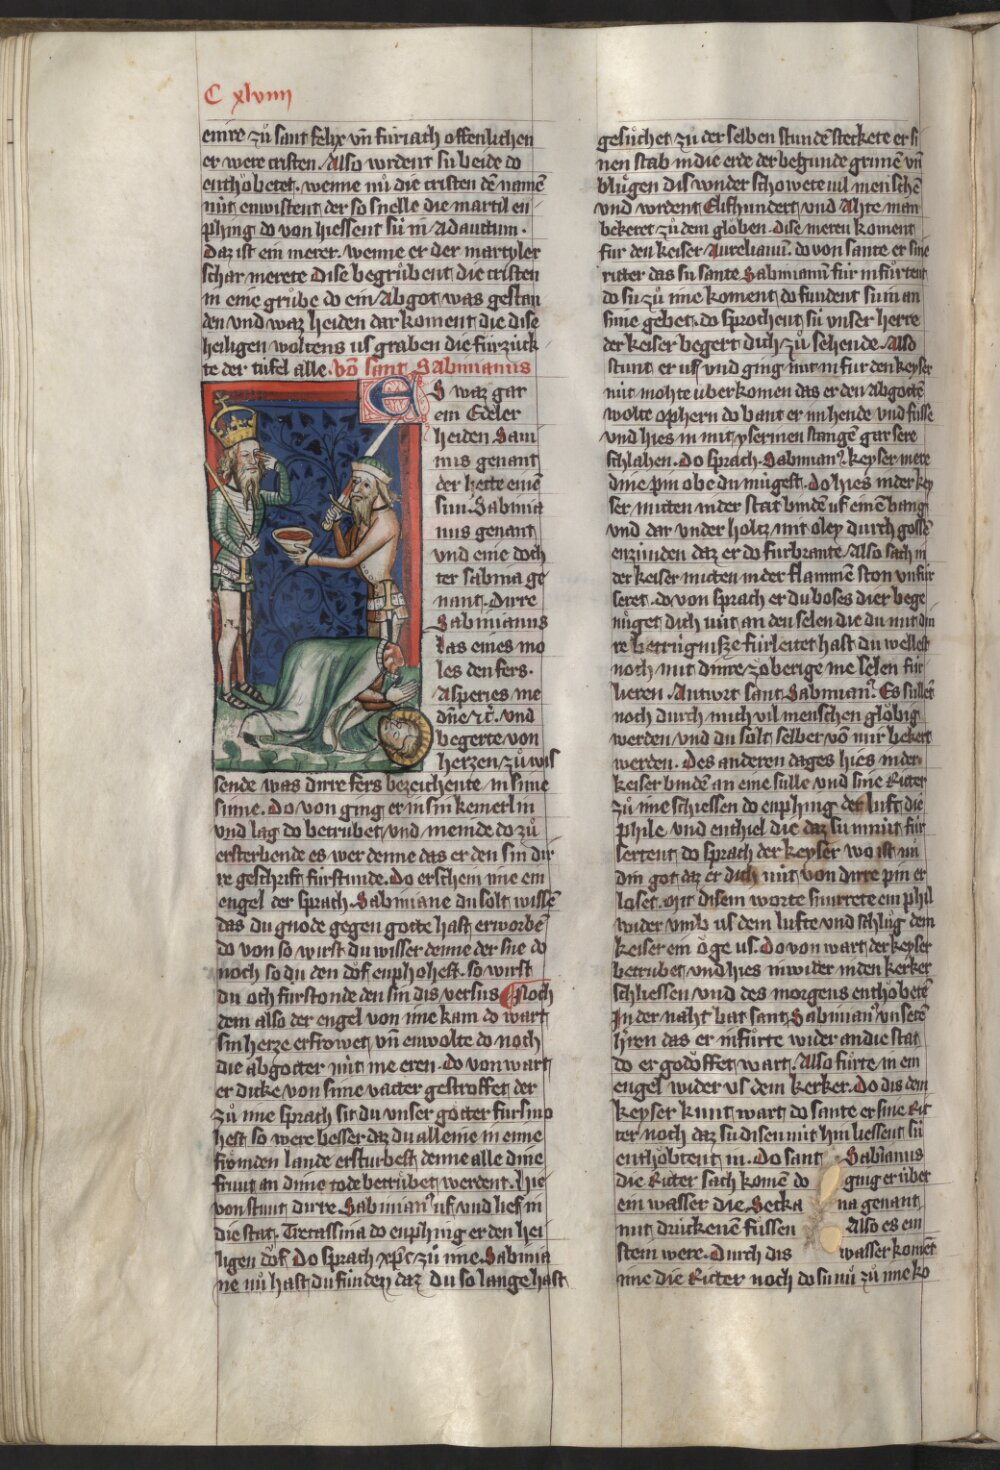 C xlviiij
einre zuͦ sant felix vñ furiach offenlichen
er were cristen. Also wrdent su beide do
enthöbetet. wenne nuͦ die cristen dē namē
nüt enwistent der so snelle die martil en
phing do von hiessent sü in Adauctum.
Daz ist ein merer. wenne er der martyler
schar merete Dise begruͦbent die cristen
in eine gruͦbe do ein Abgot was gestan
den vnd waz heiden dar koment die dise
heiligen woltens us graben die fürzuck
te der tüfel alle. Vō sant Sabinianus
ES waz gar
ein Edeler
heiden Savi
nus genant
der hette einē
sun Sabinia
nus genant
vnd eine doch
ter sabina ge
nant. Dirre
Sabinianus
las eines mo
les den fers.
Asperies me
dn̄e zc̄. vnd
begerte von
herzen zuͦ wis
sende was dirre fers bezeichente in sime
sinne. Do von ging er in sin kemerlin
vnd lag do betrubet vnd meinde do zuͦ
ersterbende es wer denne das er den sin dir
re geschrift fürstunde. Do erschein ime ein
engel der sprach. Sabiniane du solt wissē
das du gnode gegen gotte hast erworbē
do von so wirst du wisser denne der sne do
noch so du den döf enphohest. so wirst
du och fürstonde den sin dis versus Noch
dem also der engel von ime kam do wart
sin herze erfröwet, vñ enwolte do noch
die abgötter nüt me eren. do von wart
er dicke von sime vatter gestroffet der
zuͦ ime sprach sit du vnser götter fürsmo
hest so were besser daz du alleine in eime
frömden lande ersturbest denne alle dine
frunt an dime tode betruͤbet werdent. Hie
von stunt dirre Sabinianꝰ uf vnd lief in
die stat. Trecassina do enphing er den hei
ligen döf Do sprach xp̄c zuͦ ime. Sabinia
ne nuͦ hast du funden daz du so lange hast
gesuͦchet zu der selben stundē steckete er si
nen stab in die erde der begunde gruͤnē vñ
bluͤgen dis wnder schowete uil menschē
vnd wrdent Elifhundert vnd Ahte man
bekeret zuͦ dem glöben. dise meren koment
für den keiser Aurelianū. do von sante er sine
ritter das su sante Sabinianū für in fuͤrtent
do su zuͦ ime koment do fundent su in an
sime gebet. do sprochent sü vnser herre
der keiser begert dich zuͦ sehende. Also
stunt er uf vnd ging mit in für den keyser
nüt mohte überkomen das er den abgöttē
wolte ophern do bant er im hende vnd füsse
vnd hies in mit yserinen stangē gar sere
schlahen. Do sprach Sabinianꝰ. keyser mere
dine pin obe du mügest. Do hies in der key
ser mitten in der stat bindē uf einē bang
vnd dar vnder holtz mit oley durch gossē
enzünden daz er do fürbrante Also sach in
der keiser mitten in der flammē ston vnfür
seret. do von sprach er du böses dier bege
nüget dich nüt an den selen die du mit din
re betrügnisse fürleitet hast du wellest
noch mit dinre zöberige ine selen für
lieren. Antwrt sant Sabinianꝰ Es süllēt
noch durch mich vil menschen glöbig
werden vnd du solt selber vō mir bekert
werden. Des anderen dages hies in der
keiser bindē an eine sülle vnd sine Ritter
zuͦ ime schiessen do enphing der luft die
phile vnd enthiel die daz su in nüt für
sertent do sprach der keyser wo ist nu
din got daz er dich nüt von dirre pin er
loset. Mit disem worte snurrete ein phil
wider vmb us dem lufte vnd schluͦg dem
keiser ein öge us. Do von wart der keyser
betruͤbet vnd hies in wider in den kerker
schliessen vnd des morgens enthöbetē
In der naht bat sant Sabinianꝰ vnserē
hr̄ren das er in fuͤrte wider an die stat
do er gedöffet wart. Also fuͤrte in ein
engel wider us dem kerker. Do dis dem
keyser kunt wart do sante er sine Rit
ter noch daz su disen nüt hin liessent sü
enthöbtent in. Do sant Sabīanus
die Ritter sach komē do ging er über
ein wasser die Secka na genant
mit druckenē füssen Also es ein
stein were. Durch dis wasser komēt
ime die Ritter noch do su nuͦ zuͦ ime ko